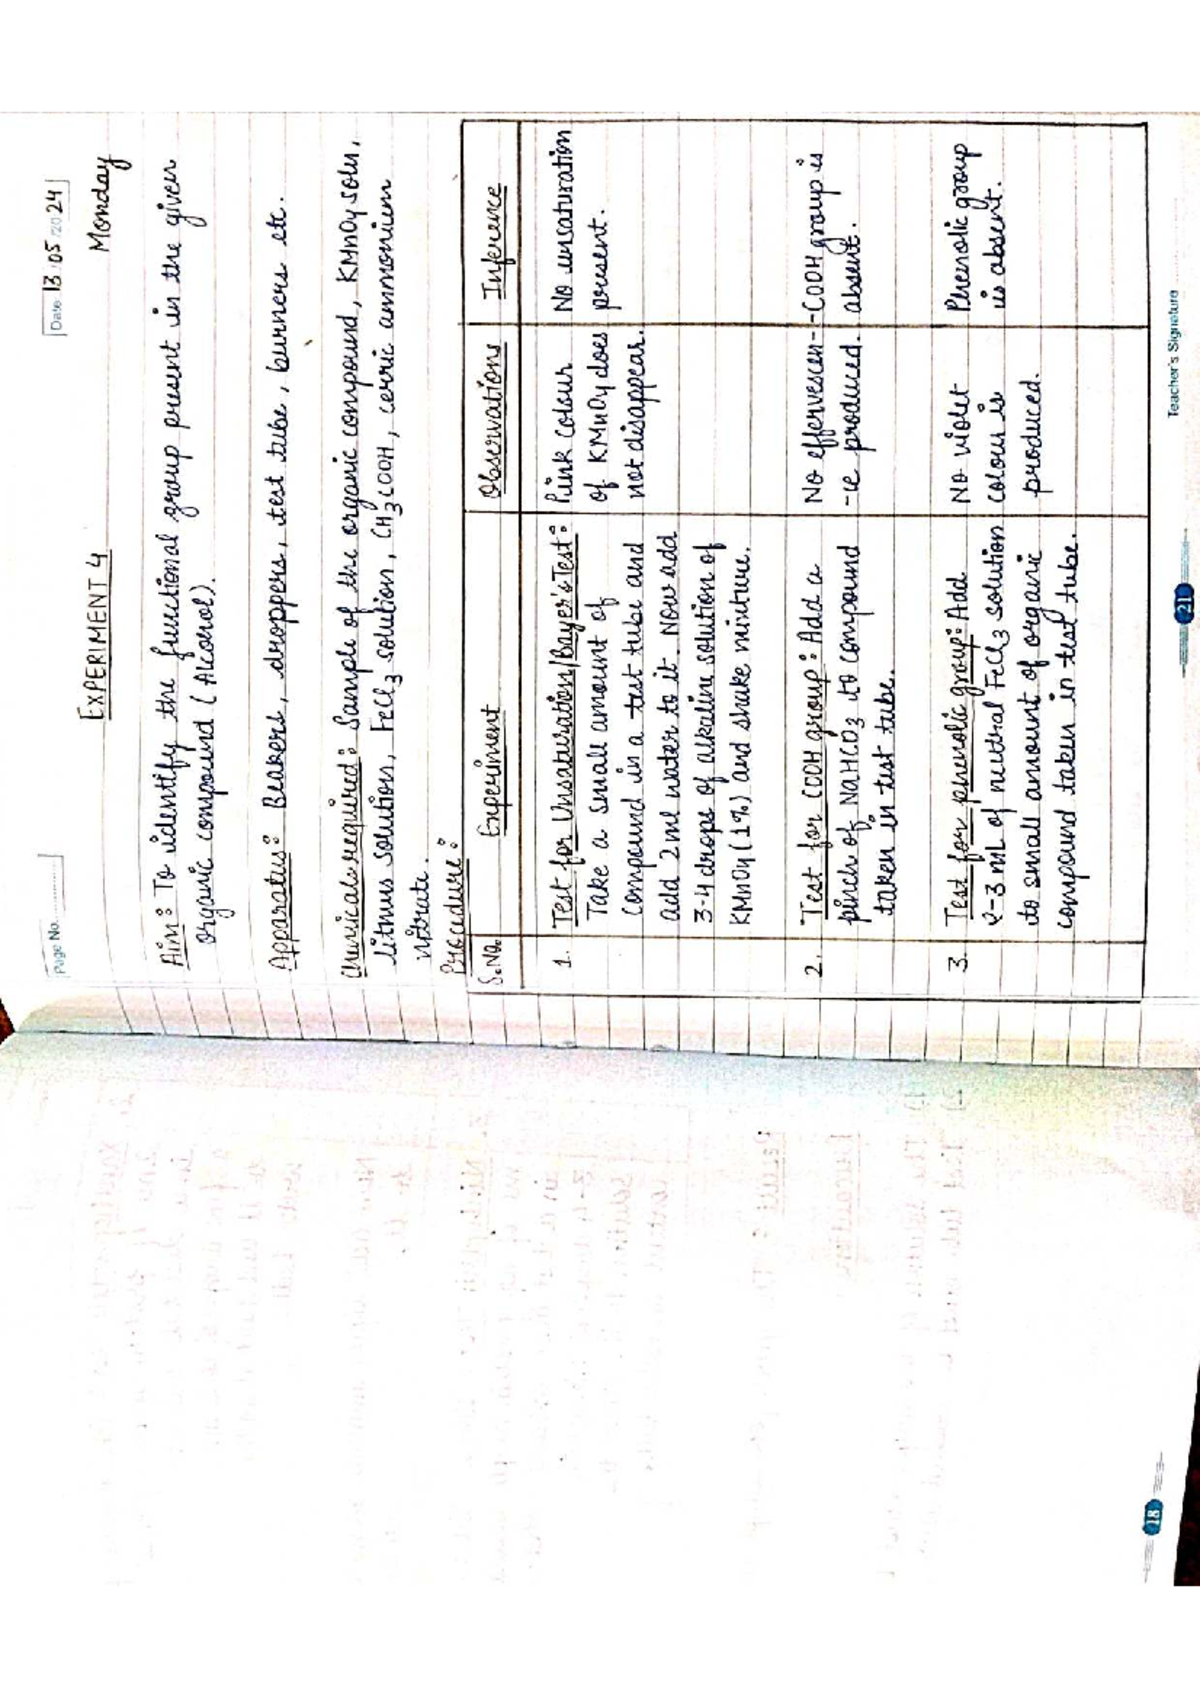 Page No.
Date 13/05/2024
Monday
EXPERIMENT 4
Aim: To identify the functional group present in the given
organic compound (Alcohol).
Apparatus: Beakers, droppers, test tube, burners etc.
Chemicals required: Sample of the organic compound, KMnO4 soln,
litmus solution, FeCl3 solution, CH3COOH, cerric ammonium
nitrate.
Procedure:
S.No. Experiment Observations Inference
1. Test for Unsaturation/Bayer's Test:
Take a small amount of
compound in a test tube and
add 2ml water to it. Now add
3-4 drops of alkaline solution of
KMnO4 (1%) and shake mixture.
Pink colour
of KMnO4 does
not disappear.
No unsaturation
present.
2. Test for COOH group: Add a
pinch of NaHCO3 to compound
taken in test tube.
No effervescen-
-ce produced.
-COOH group is
absent.
3. Test for phenolic group: Add
2-3 mL of neutral FeCl3 solution
to small amount of organic
compound taken in test tube.
No violet
colour is
produced.
Phenolic group
is absent.
Teacher's Signature
21
18